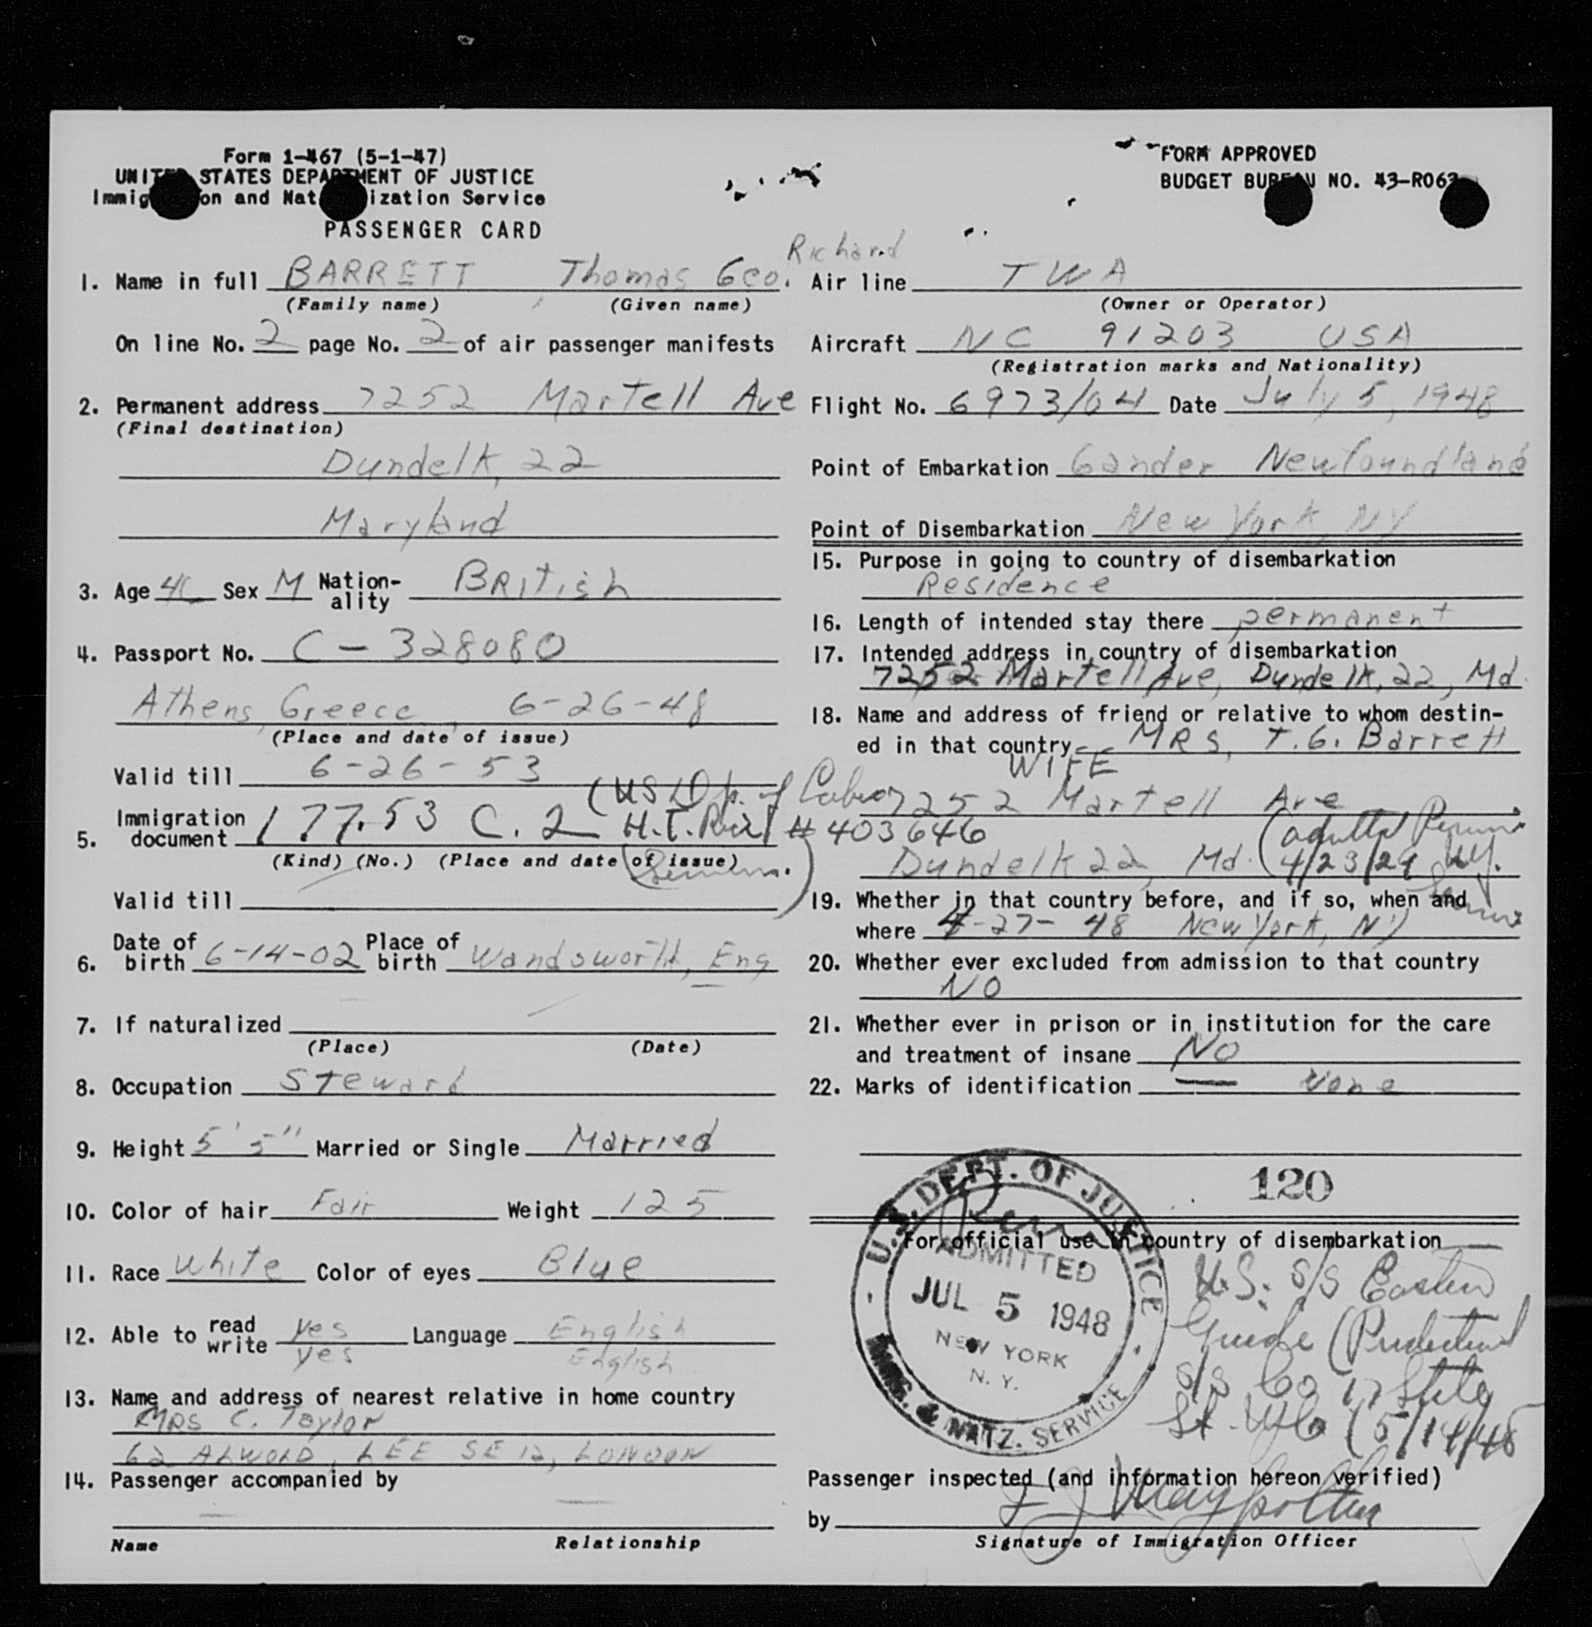 Form 1-467 (5-1-47)
UNITED STATES DEPARTMENT OF JUSTICE
Immigration and Naturalization Service
PASSENGER CARD
FORM APPROVED
BUDGET BUREAU NO. 43-R063
1. Name in full BARRETT Thomas Geo. Richard
(Family name) (Given name)
On line No. 2 page No. 2 of air passenger manifests
2. Permanent address 7252 Martell Ave
(Final destination)
Dundelk, 22
Maryland
3. Age 46 Sex M Nationality British
4. Passport No. C-328080
Athens, Greece, 6-26-48
(Place and date of issue)
Valid till 6-26-53
5. Immigration document 177.53 C. 2 # 403646
(US Dp. of Labor
(Kind) (No.) (Place and date of issue)
Valid till
6. Date of birth 6-14-02 Place of birth Wandsworth, Eng
7. If naturalized
(Place) (Date)
8. Occupation Steward
9. Height 5' 5" Married or Single Married
10. Color of hair Fair Weight 125
11. Race White Color of eyes Blue
12. Able to read yes write yes Language English
English
13. Name and address of nearest relative in home country
Mrs C. Taylor
62 ALWOLD, LEE SE 12, LONDON
14. Passenger accompanied by
Name Relationship
Air line TWA
(Owner or Operator)
Aircraft NC 91203 USA
(Registration marks and Nationality)
Flight No. 6973/04 Date July 5, 1948
Point of Embarkation Gander Newfoundland
Point of Disembarkation New York NY
15. Purpose in going to country of disembarkation
Residence
16. Length of intended stay there permanent
17. Intended address in country of disembarkation
7252 Martell Ave, Dundelk, 22, Md.
18. Name and address of friend or relative to whom destin-
ed in that country MRS. T.G. Barrett
WIFE
7252 Martell Ave
Dundelk 22, Md. 4/23/29 N.Y.
19. Whether in that country before, and if so, when and
where 4-27-48 New York, NY
20. Whether ever excluded from admission to that country
NO
21. Whether ever in prison or in institution for the care
and treatment of insane NO
22. Marks of identification — None
120
For official use in country of disembarkation
U.S. DEPT. OF JUSTICE
ADMITTED
JUL 5 1948
NEW YORK
N. Y.
IMMIG. & NATZ. SERVICE
U.S. S/S Eastern
Guide (Prudential
S/S Co 17 State
St. NYC (5/14/48
Passenger inspected (and information hereon verified)
by
Signature of Immigration Officer